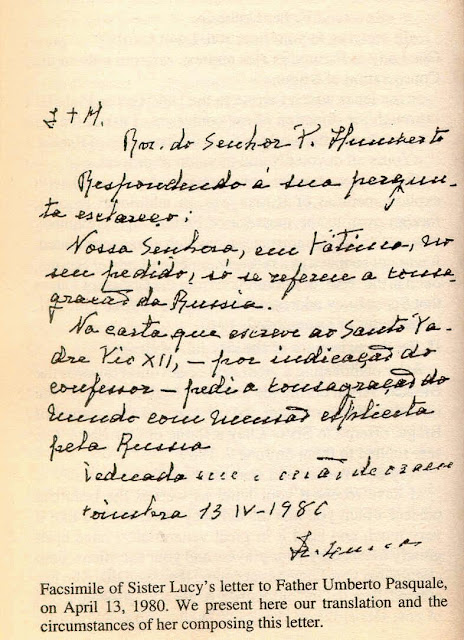 J + M.
Rev. do Senhor P. Humberto
Respondendo á sua pergun-
ta esclareço:
Nossa Senhora, em Fátima, no
seu pedido, só se referiu a consa-
gração da Russia.
Na carta que escreve ao Santo Pa-
dre Pio XII, – por indicação do
confessor – pedi a consagração do
mundo com mensão esplicita
pela Russia
Dedicada
Coimbra 13 IV – 1980
Facsimile of Sister Lucy's letter to Father Umberto Pasquale,
on April 13, 1980. We present here our translation and the
circumstances of her composing this letter.